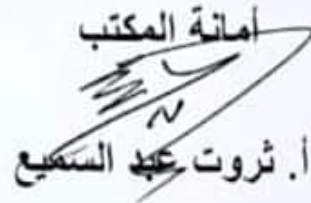 أمانة المكتب
أ. ثروت عبد السميع